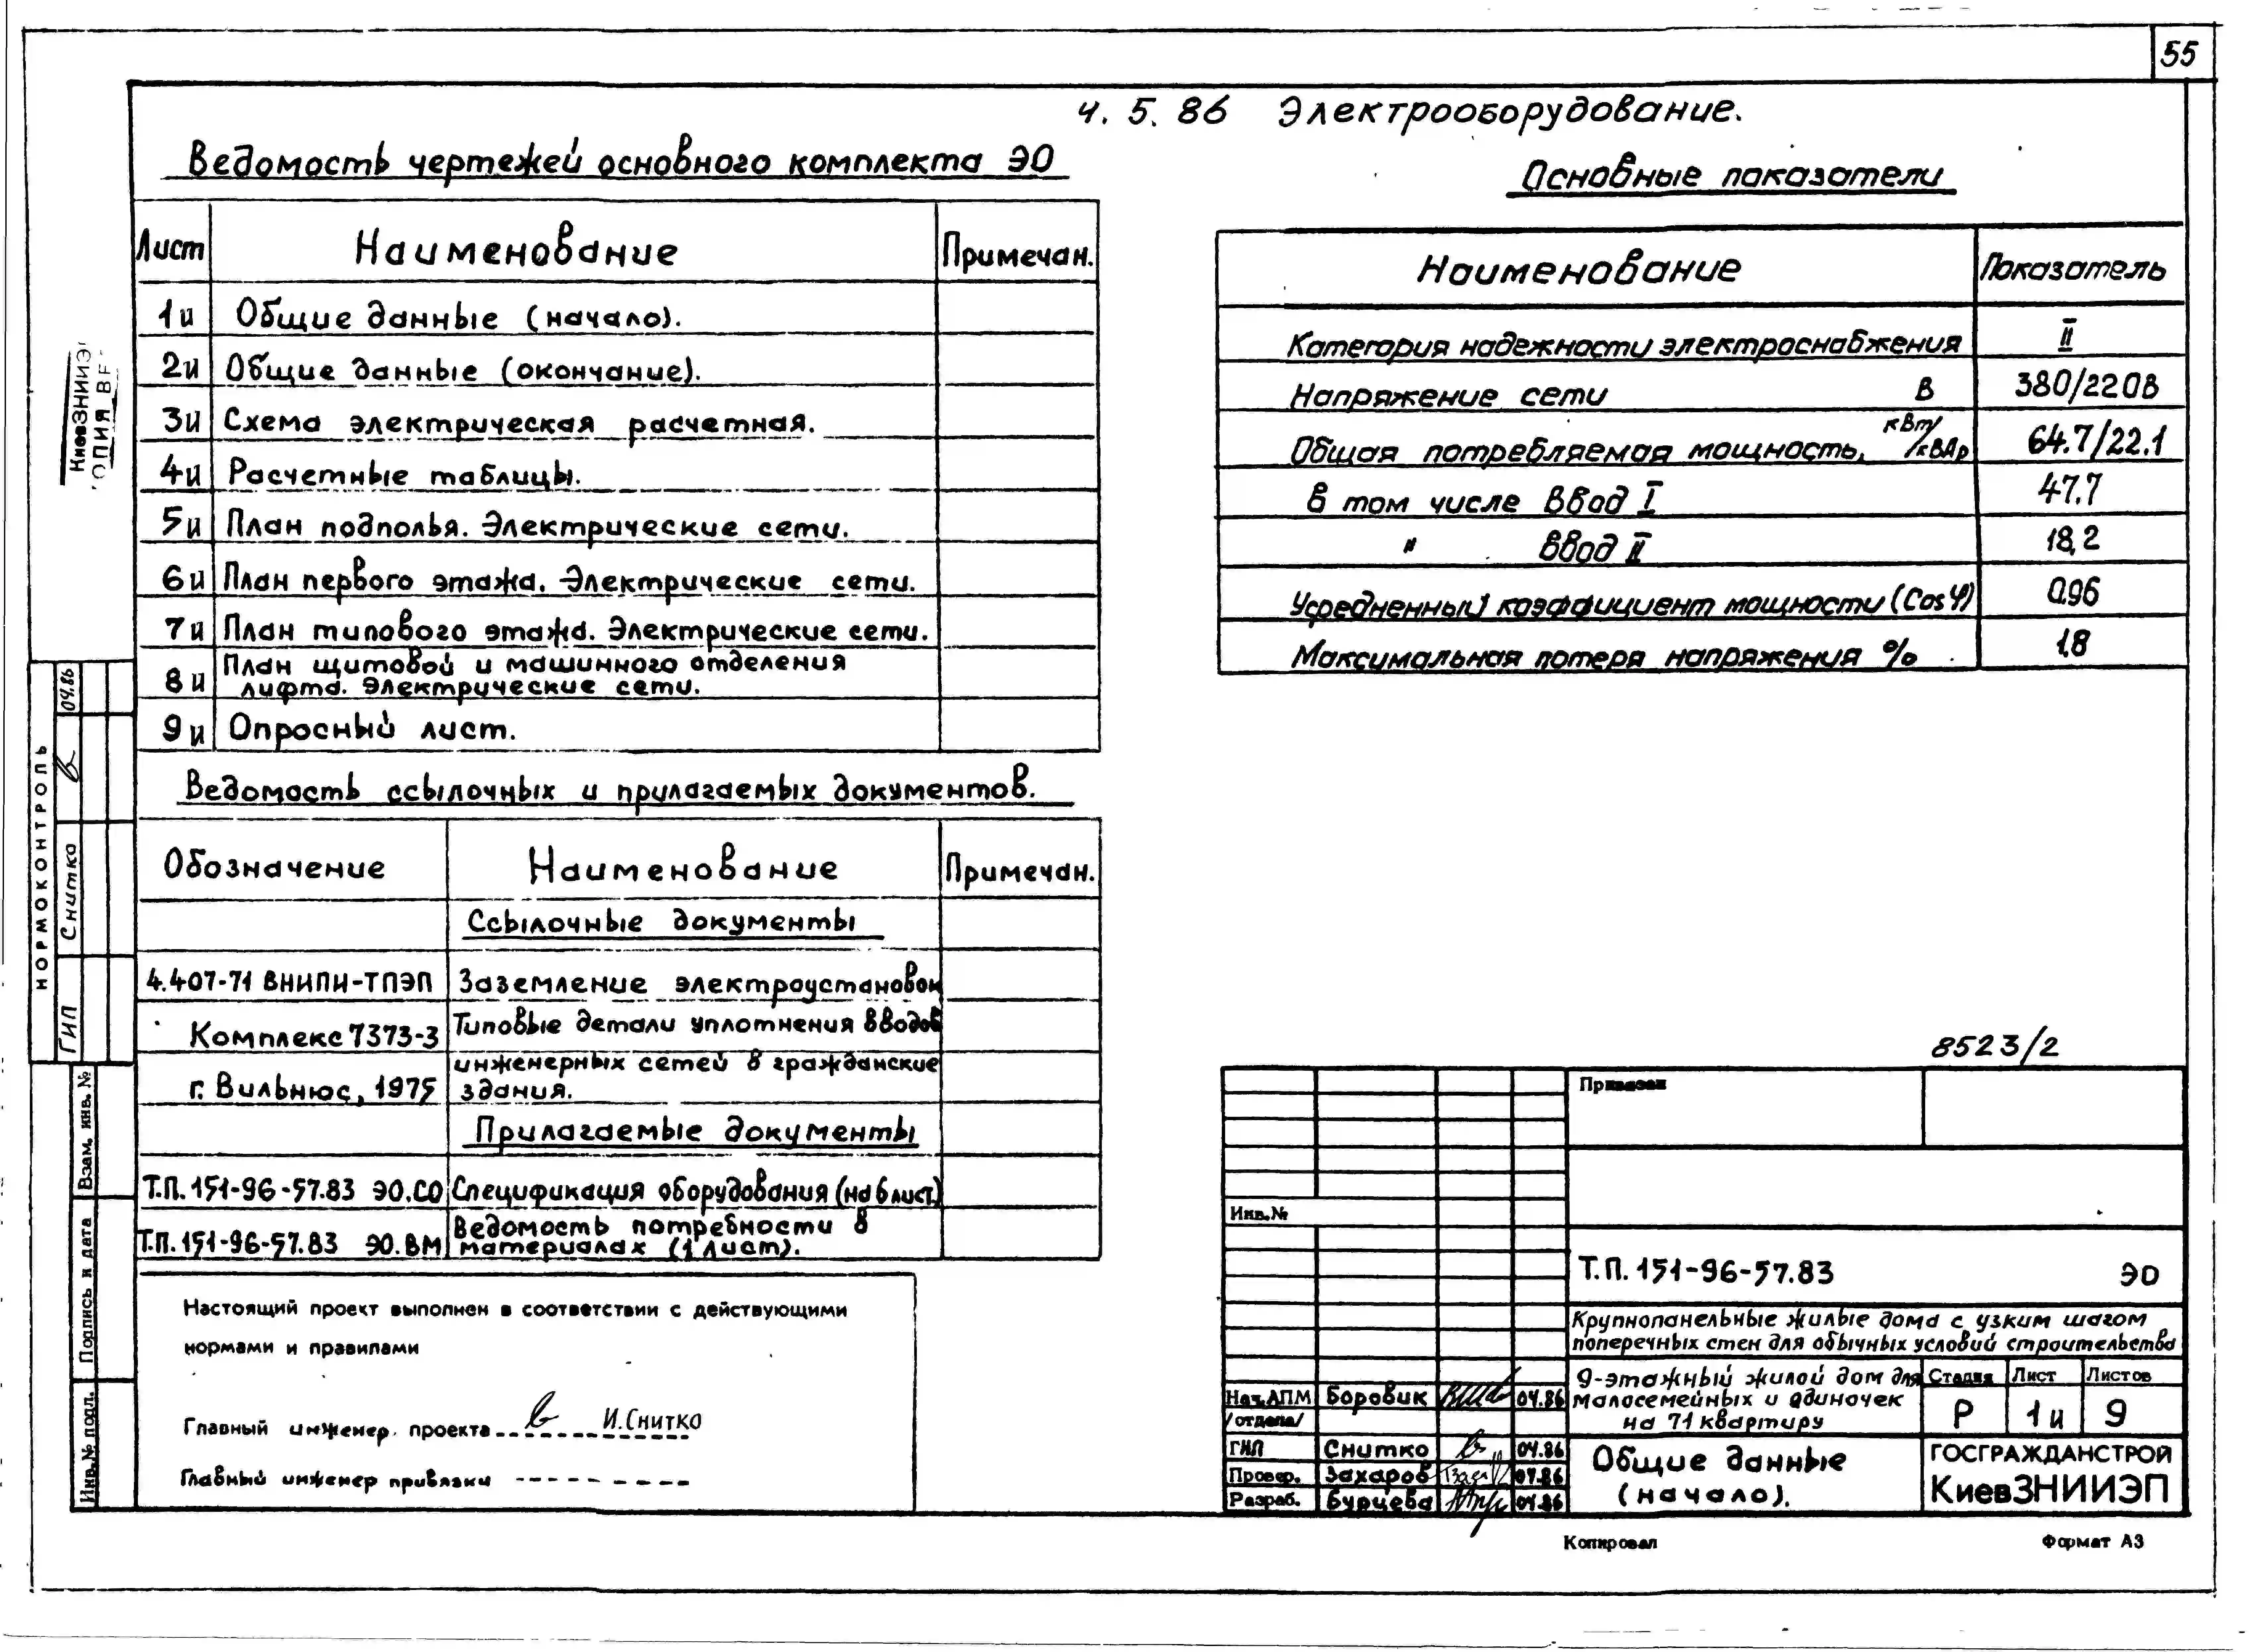 55
ч. 5. 86 Электрооборудование.
Ведомость чертежей основного комплекта ЭО
Лист Наименование Примечан.
1и Общие данные (начало).
2и Общие данные (окончание).
3и Схема электрическая расчетная.
4и Расчетные таблицы.
5и План подполья. Электрические сети.
6и План первого этажа. Электрические сети.
7и План типового этажа. Электрические сети.
8и План щитовой и машинного отделения
лифта. Электрические сети.
9и Опросный лист.
Ведомость ссылочных и прилагаемых документов.
Обозначение Наименование Примечан.
Ссылочные документы
4.407-71 ВНИПИ-ТПЭП Заземление электроустановок
Комплекс 7373-3 Типовые детали уплотнения вводов
инженерных сетей в гражданские
г. Вильнюс, 1975 здания.
Прилагаемые документы
Т.П. 151-96-57.83 ЭО.СО Спецификация оборудования (на 6 лист.)
Т.П. 151-96-57.83 ЭО.ВМ Ведомость потребности в
материалах (1 лист).
Настоящий проект выполнен в соответствии с действующими
нормами и правилами
Главный инженер проекта И.Снитко
Главный инженер привязки
Основные показатели
Наименование Показатель
Категория надежности электроснабжения II
Напряжение сети В 380/220В
Общая потребляемая мощность, кВт/кВАр 64.7/22.1
в том числе Ввод I 47.7
" Ввод II 18,2
Усредненный коэффициент мощности (Cos φ) 0.96
Максимальная потеря напряжения % 1.8
8523/2
Привязан
Инв.№
Т.П. 151-96-57.83 ЭО
Крупнопанельные жилые дома с узким шагом
поперечных стен для обычных условий строительства
9-этажный жилой дом для
малосемейных и одиночек
на 71 квартиру
Стадия Лист Листов
Р 1и 9
Общие данные
(начало).
ГОСГРАЖДАНСТРОЙ
КиевЗНИИЭП
Нач.АПМ Боровик 04.86
/отдела/
ГИП Снитко 04.86
Провер. Захаров 04.86
Разраб. Бурцева 04.86
Копировал Формат А3
КиевЗНИИЭ
ОПИЯ ВЕ
НОРМОКОНТРОЛЬ
ГИП Снитко 04.86
Взам. инв. №
Подпись и дата
Инв.№ подл.